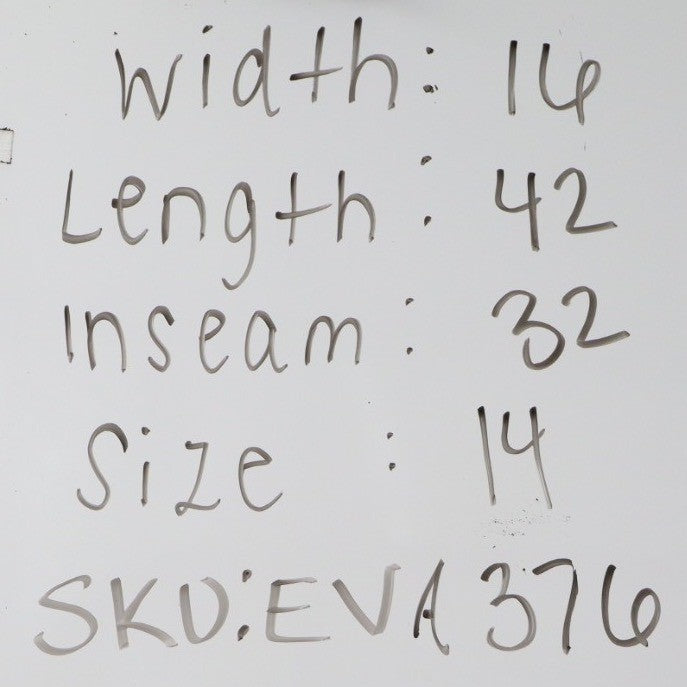 Width: 16
Length: 42
Inseam: 32
Size : 14
SKU: EVA 376